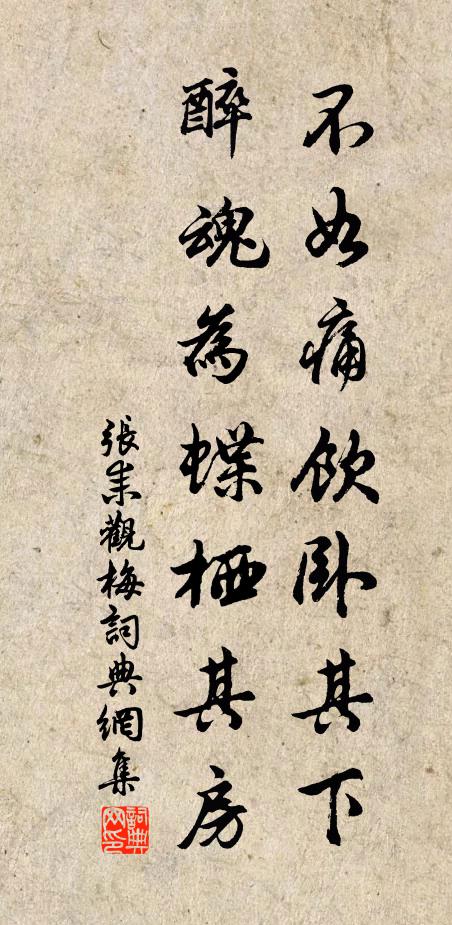 不如痛飲卧其下
醉魂為蝶栖其房
張耒觀梅詞典網集
詞典網印